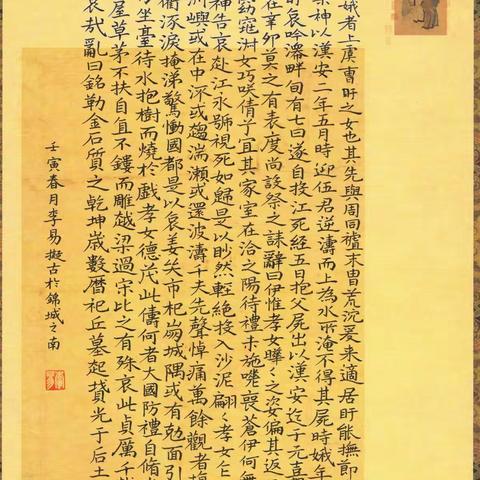 娥者上虞曹盱之女也其先與周同禮末胄荒沉爰来適居盱能撫節
神以漢安二年五月時迎伍君逆濤而上為水所淹不得其屍時娥年
哀吟澤畔旬有七日遂自投江死經五日抱父屍出以漢安迄于元嘉
在辛卯莫之有表度尚設祭之誄辭曰伊惟孝女曄〻之姿偏其返
窈窕淑女巧咲倩兮宜其家室在洽之陽待禮未施嗟喪蒼伊何無
神告哀赴江永號視死如歸是以眇然輕絕投入沙泥翩〻孝女乍
洲嶼或在中流或趨湍瀨或還波濤千夫失聲悼痛萬餘觀者填
衢流淚掩涕驚慟國都是以哀姜哭市杞崩城隅或有勉面引
坐臺待水抱樹而燒於戲孝女德茂此儔何者大國防禮自脩
屋草茅不扶自直不鏤而雕越梁過宋比之有殊哀此貞厲千
哀哉亂曰銘勒金石質之乾坤歲數曆祀丘墓起墳光于后土
壬寅春月李易擬古於錦城之南